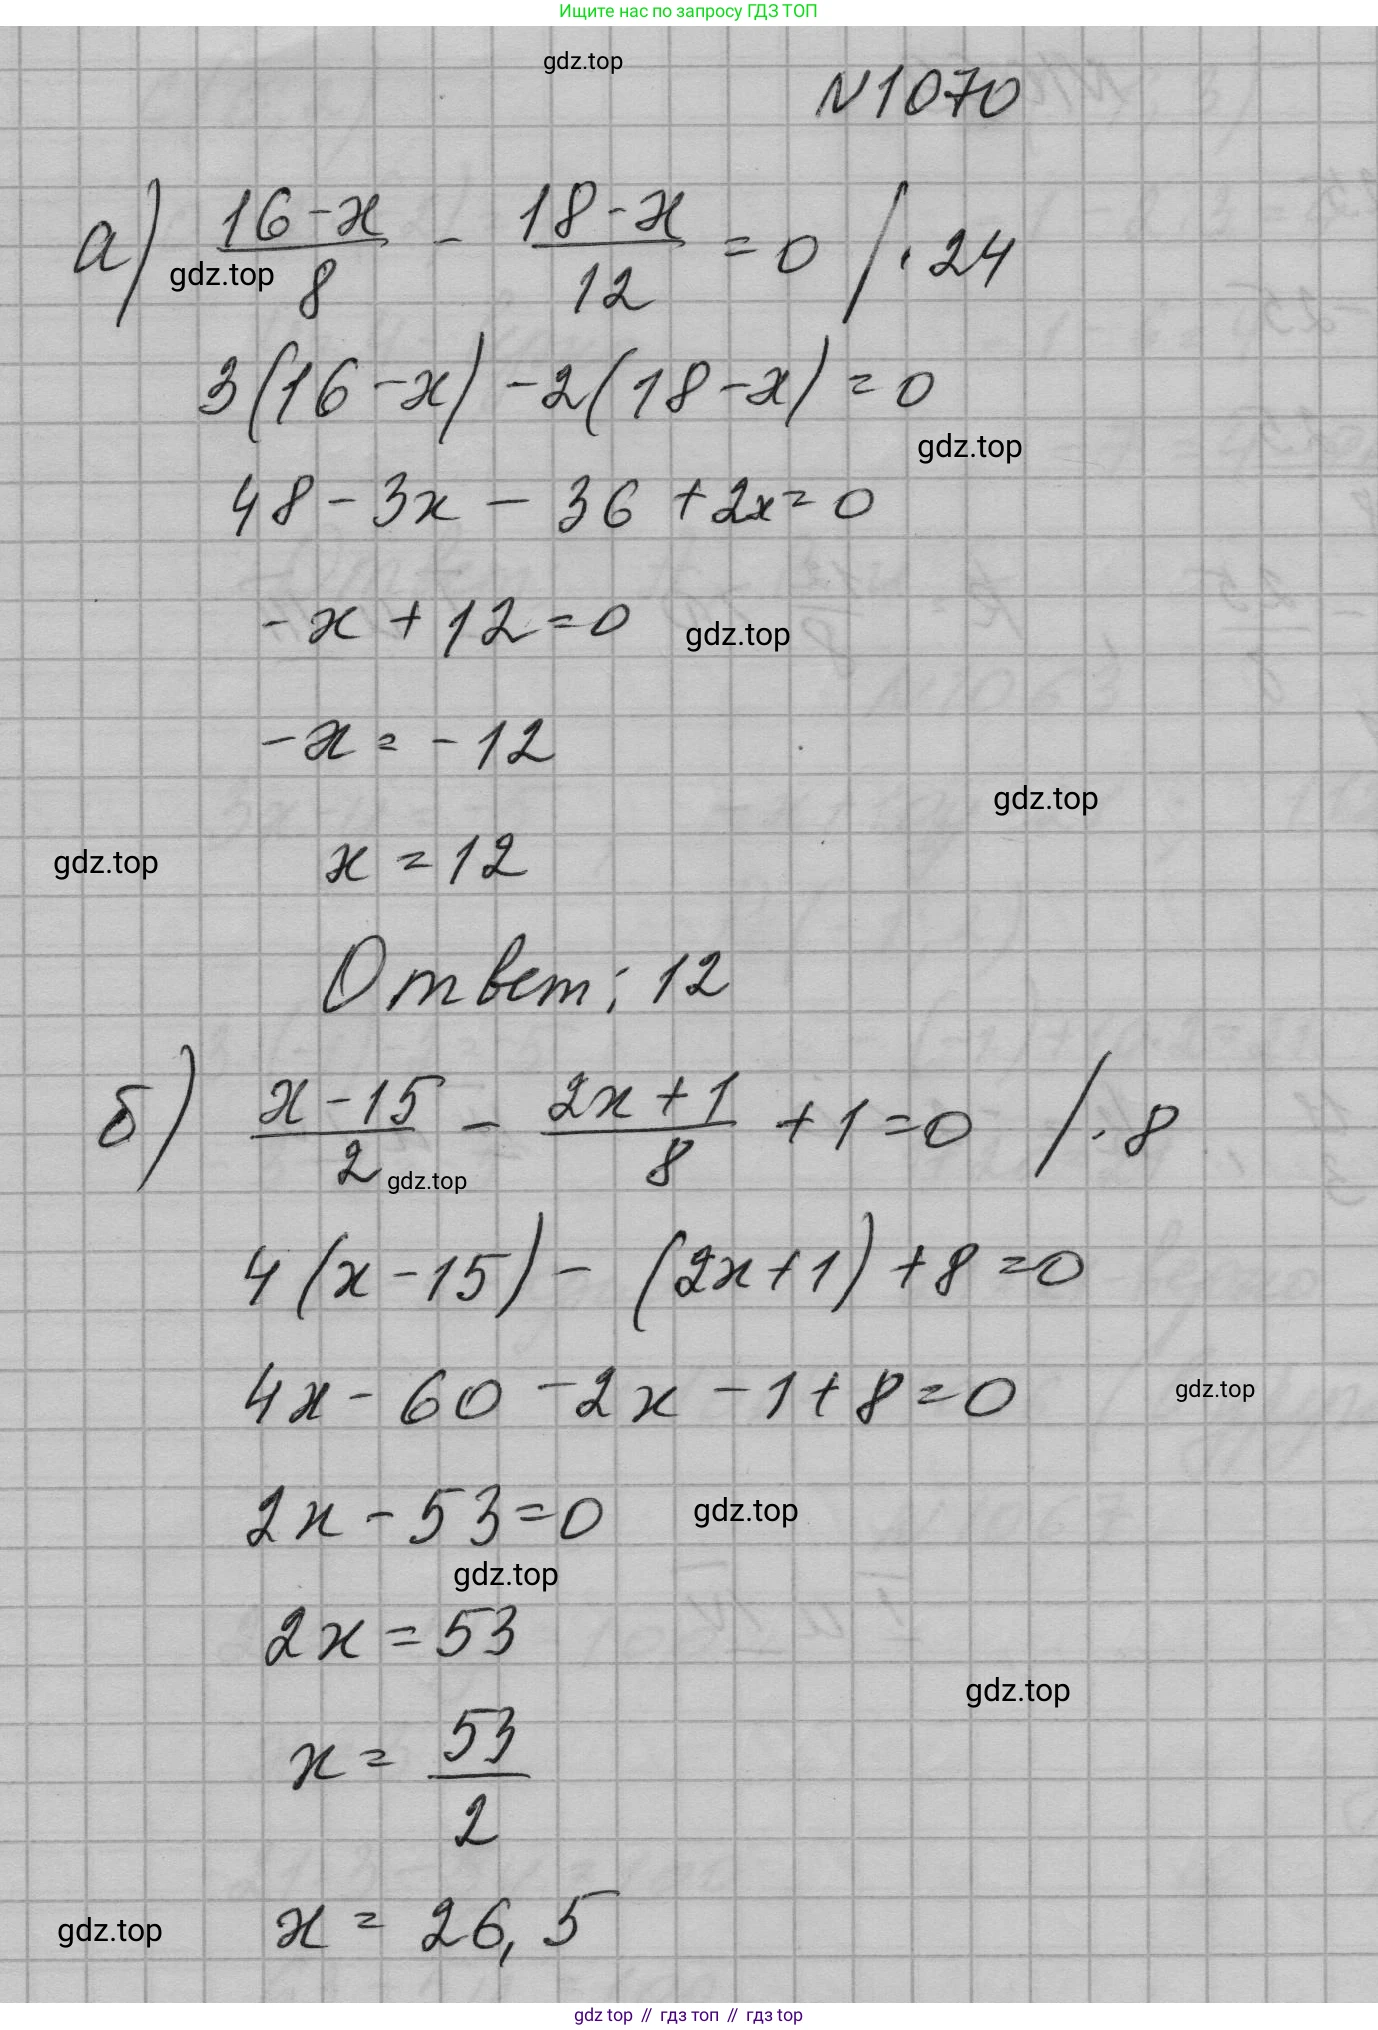 Ищите нас по запросу ГДЗ ТОП
gdz.top
N1070
а) (16-x)/8 - (18-x)/12 = 0 /·24
gdz.top
3(16-x)-2(18-x)=0
gdz.top
48-3x-36+2x=0
-x+12=0
gdz.top
-x=-12
gdz.top
x=12
gdz.top
Ответ: 12
б) (x-15)/2 - (2x+1)/8 + 1 = 0 /·8
gdz.top
4(x-15)-(2x+1)+8=0
4x-60-2x-1+8=0
gdz.top
2x-53=0
gdz.top
gdz.top
2x=53
gdz.top
x=53/2
x=26,5
gdz.top
gdz top // гдз топ // gdz top